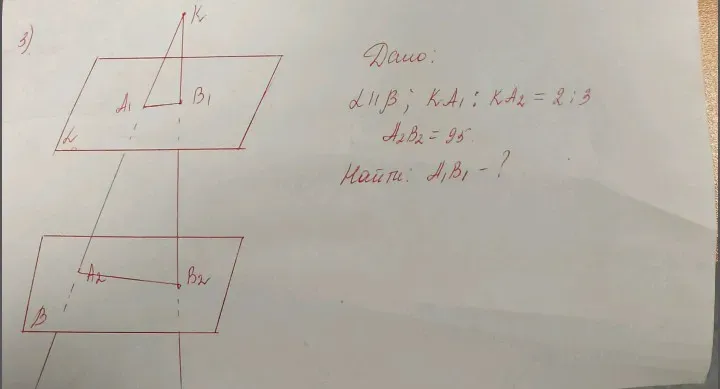 3)
K
A₁
B₁
α
A₂
B₂
β
Дано:
α || β; KA₁ : KA₂ = 2 : 3
A₂B₂ = 25
Найти: A₁B₁ - ?